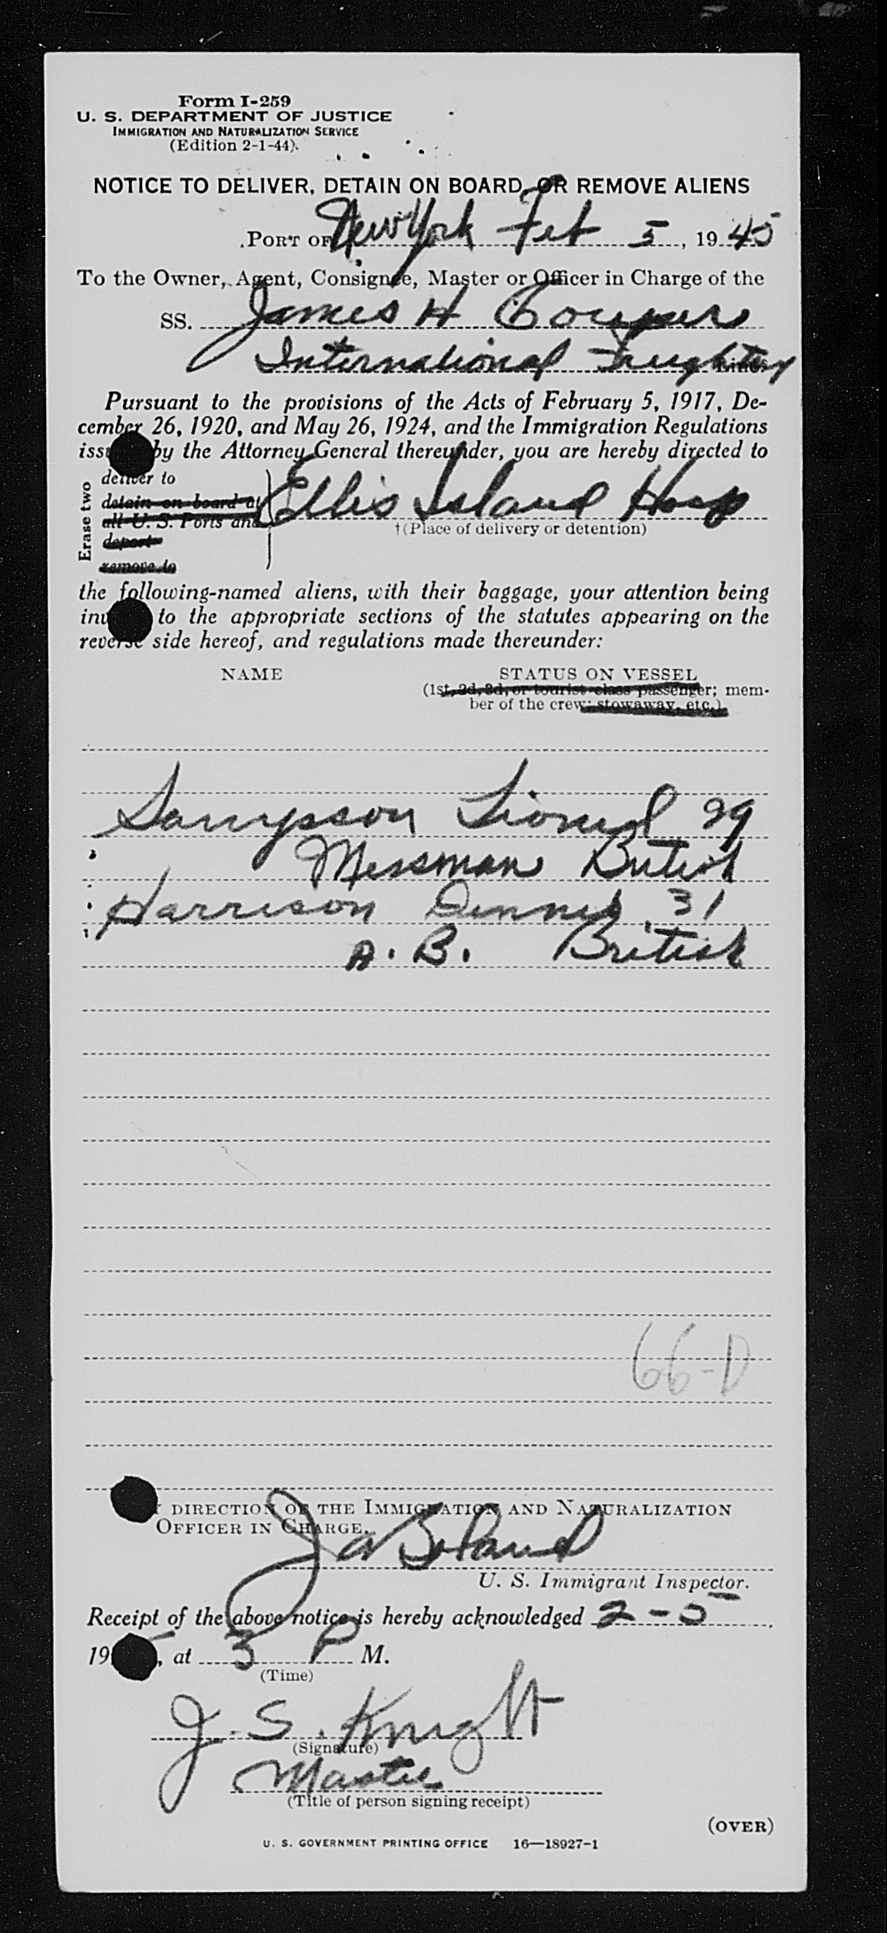 Form I-259
U. S. DEPARTMENT OF JUSTICE
IMMIGRATION AND NATURALIZATION SERVICE
(Edition 2-1-44).
NOTICE TO DELIVER, DETAIN ON BOARD, OR REMOVE ALIENS
PORT OF New York Feb 5, 1945
To the Owner, Agent, Consignee, Master or Officer in Charge of the
SS. James H Couper
International Freighting
Pursuant to the provisions of the Acts of February 5, 1917, De-
cember 26, 1920, and May 26, 1924, and the Immigration Regulations
iss by the Attorney General thereunder, you are hereby directed to
Erase two
deliver to
detain on board at
all U. S. Ports and
deport
remove to
Ellis Island Hosp
†(Place of delivery or detention)
the following-named aliens, with their baggage, your attention being
inv to the appropriate sections of the statutes appearing on the
reverse side hereof, and regulations made thereunder:
NAME STATUS ON VESSEL
(1st, 2d, 3d, or tourist class passenger; mem-
ber of the crew; stowaway, etc.)
Sampson Lionel 29
Messman British
Harrison Dennis 31
A. B. British
66-D
DIRECTION OF THE IMMIGRATION AND NATURALIZATION
OFFICER IN CHARGE.
J A Boland
U. S. Immigrant Inspector.
Receipt of the above notice is hereby acknowledged 2-5
19, at 3 P M.
(Time)
J. S. Knight
(Signature)
Master
(Title of person signing receipt)
(OVER)
U. S. GOVERNMENT PRINTING OFFICE 16—18927-1